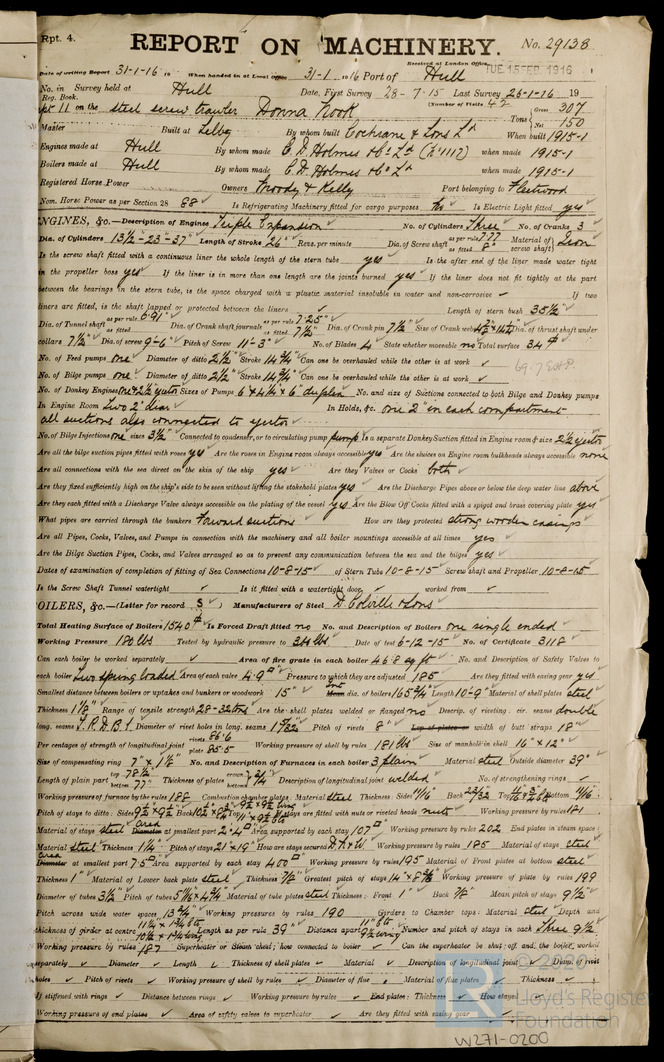 Rpt. 4.
REPORT ON MACHINERY. No. 29138
Received at London Office TUE. 15 FEB. 1916
Date of writing Report 31-1-16 19 When handed in at Local Office 31-1 1916 Port of Hull
No. in Survey held at Hull Date, First Survey 28-7-15 Last Survey 25-1-16 19
Reg. Book. (Number of Visits 42
on the steel screw trawler Donna Nook Tons { Gross 307 Net 150
Master Built at Selby By whom built Cochrane & Sons Ld When built 1915-1
Engines made at Hull By whom made C. D. Holmes & Co Ld (No 1117) when made 1915-1
Boilers made at Hull By whom made C. D. Holmes & Co Ld when made 1915-1
Registered Horse Power Owners Moody & Kelly Port belonging to Fleetwood
Nom. Horse Power as per Section 28 88 Is Refrigerating Machinery fitted for cargo purposes no Is Electric Light fitted yes
ENGINES, &c.—Description of Engines Triple Expansion No. of Cylinders Three No. of Cranks 3
Dia. of Cylinders 13½"-23-37" Length of Stroke 26" Revs. per minute Dia. of Screw shaft as per rule 7.77 as fitted 8" Material of screw shaft Iron
Is the screw shaft fitted with a continuous liner the whole length of the stern tube yes Is the after end of the liner made water tight
in the propeller boss yes If the liner is in more than one length are the joints burned yes If the liner does not fit tightly at the part
between the bearings in the stern tube, is the space charged with a plastic material insoluble in water and non-corrosive ✓ If two
liners are fitted, is the shaft lapped or protected between the liners ✓ Length of stern bush 35½"
Dia. of Tunnel shaft as per rule 6.91" as fitted Dia. of Crank shaft journals as per rule 7.25" as fitted 7½" Dia. of Crank pin 7½" Size of Crank webs Dia. of thrust shaft under
collars 7½" Dia. of screw 9-6" Pitch of Screw 11-3" No. of Blades 4 State whether moveable no Total surface 34 ft
No. of Feed pumps one Diameter of ditto 2½" Stroke 14¾" Can one be overhauled while the other is at work ✓
No. of Bilge pumps one Diameter of ditto 2½" Stroke 14¾" Can one be overhauled while the other is at work ✓
No. of Donkey Engines one & 2½" ejector Sizes of Pumps 6" x 4¼" x 6" duplex No. and size of Suctions connected to both Bilge and Donkey pumps
In Engine Room two 2" dia In Holds, &c. one 2" in each compartment
all suctions also connected to ejector
No. of Bilge Injections one sizes 3½" Connected to condenser, or to circulating pump pump Is a separate Donkey Suction fitted in Engine room & size 2½" ejector
Are all the bilge suction pipes fitted with roses yes Are the roses in Engine room always accessible yes Are the sluices on Engine room bulkheads always accessible none
Are all connections with the sea direct on the skin of the ship yes Are they Valves or Cocks both
Are they fixed sufficiently high on the ship's side to be seen without lifting the stokehold plates yes Are the Discharge Pipes above or below the deep water line above
Are they each fitted with a Discharge Valve always accessible on the plating of the vessel yes Are the Blow Off Cocks fitted with a spigot and brass covering plate yes
What pipes are carried through the bunkers Forward suctions How are they protected strong wooden casings
Are all Pipes, Cocks, Valves, and Pumps in connection with the machinery and all boiler mountings accessible at all times yes
Are the Bilge Suction Pipes, Cocks, and Valves arranged so as to prevent any communication between the sea and the bilges yes
Dates of examination of completion of fitting of Sea Connections 10-8-15 of Stern Tube 10-8-15 Screw shaft and Propeller 10-8-15
Is the Screw Shaft Tunnel watertight ✓ Is it fitted with a watertight door ✓ worked from ✓
BOILERS, &c.—(Letter for record S) Manufacturers of Steel D. Colville & Sons
Total Heating Surface of Boilers 1540 ft Is Forced Draft fitted no No. and Description of Boilers one single ended
Working Pressure 180 lbs Tested by hydraulic pressure to 360 lbs Date of test 6-12-15 No. of Certificate 3118
Can each boiler be worked separately ✓ Area of fire grate in each boiler 46.8 sq ft No. and Description of Safety Valves to
each boiler two spring loaded Area of each valve 4.9" Pressure to which they are adjusted 185 Are they fitted with easing gear yes
Smallest distance between boilers or uptakes and bunkers or woodwork 15" Int dia. of boilers 165¾" Length 10-9" Material of shell plates steel
Thickness 1⅛" Range of tensile strength 28-32 tons Are the shell plates welded or flanged no Descrip. of riveting: cir. seams double
long. seams T.R.D.B.S. Diameter of rivet holes in long. seams Pitch of rivets 8" Lap of plates or width of butt straps 18"
Per centages of strength of longitudinal joint rivets 86.6 plate 85.5 Working pressure of shell by rules 181 lbs Size of manhole in shell 16" x 12"
Size of compensating ring 7" x 1⅛" No. and Description of Furnaces in each boiler 3 plain Material steel Outside diameter 39"
Length of plain part top 78½" bottom 77" Thickness of plates crown bottom Description of longitudinal joint welded No. of strengthening rings ✓
Working pressure of furnace by the rules 188 Combustion chamber plates: Material steel Thickness: Sides 11/16" Back 23/32" Top Bottom 11/16"
Pitch of stays to ditto: Sides Back Top If stays are fitted with nuts or riveted heads nuts Working pressure by rules 181
Material of stays steel area at smallest part Area supported by each stay 107" Working pressure by rules 202 End plates in steam space:
Material steel Thickness 1¼" Pitch of stays 21 x 19" How are stays secured D.N. & W. Working pressure by rules 185 Material of stays steel
area at smallest part 7.5" Area supported by each stay 400" Working pressure by rules 195 Material of Front plates at bottom steel
Thickness 1" Material of Lower back plate steel Thickness ⅞" Greatest pitch of stays Working pressure of plate by rules 199
Diameter of tubes 3½" Pitch of tubes Material of tube plates steel Thickness: Front 1" Back ⅞" Mean pitch of stays 9½"
Pitch across wide water spaces 13¾" Working pressures by rules 190 Girders to Chamber tops: Material steel Depth and
thickness of girder at centre Length as per rule 39" Distance apart Number and pitch of stays in each three 9½"
Working pressure by rules 187 Superheater or Steam chest; how connected to boiler ✓ Can the superheater be shut off and the boiler worked
separately ✓ Diameter ✓ Length ✓ Thickness of shell plates ✓ Material ✓ Description of longitudinal joint ✓ Diam. of rivet
holes ✓ Pitch of rivets ✓ Working pressure of shell by rules ✓ Diameter of flue ✓ Material of flue plates ✓ Thickness ✓
If stiffened with rings ✓ Distance between rings ✓ Working pressure by rules ✓ End plates: Thickness ✓ How stayed
Working pressure of end plates ✓ Area of safety valves to superheater ✓ Are they fitted with easing gear ✓
© 2020
Lloyd's Register
Foundation
W271-0200